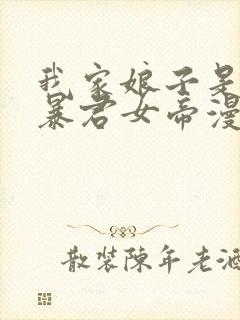 我家娘子是
暴君女帝漫
散装陈年老酒